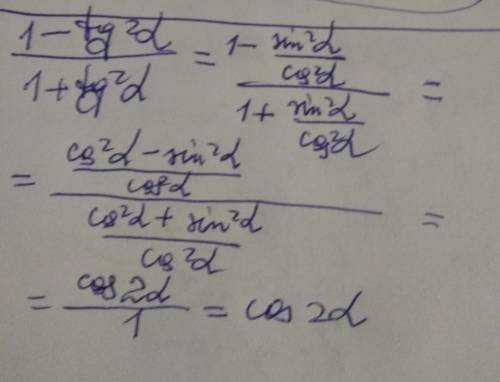 (1 - tg²α)/(1 + tg²α) = (1 - sin²α/cos²α)/(1 + sin²α/cos²α) =
= ((cos²α - sin²α)/cos²α)/((cos²α + sin²α)/cos²α) =
= cos2α/1 = cos 2α